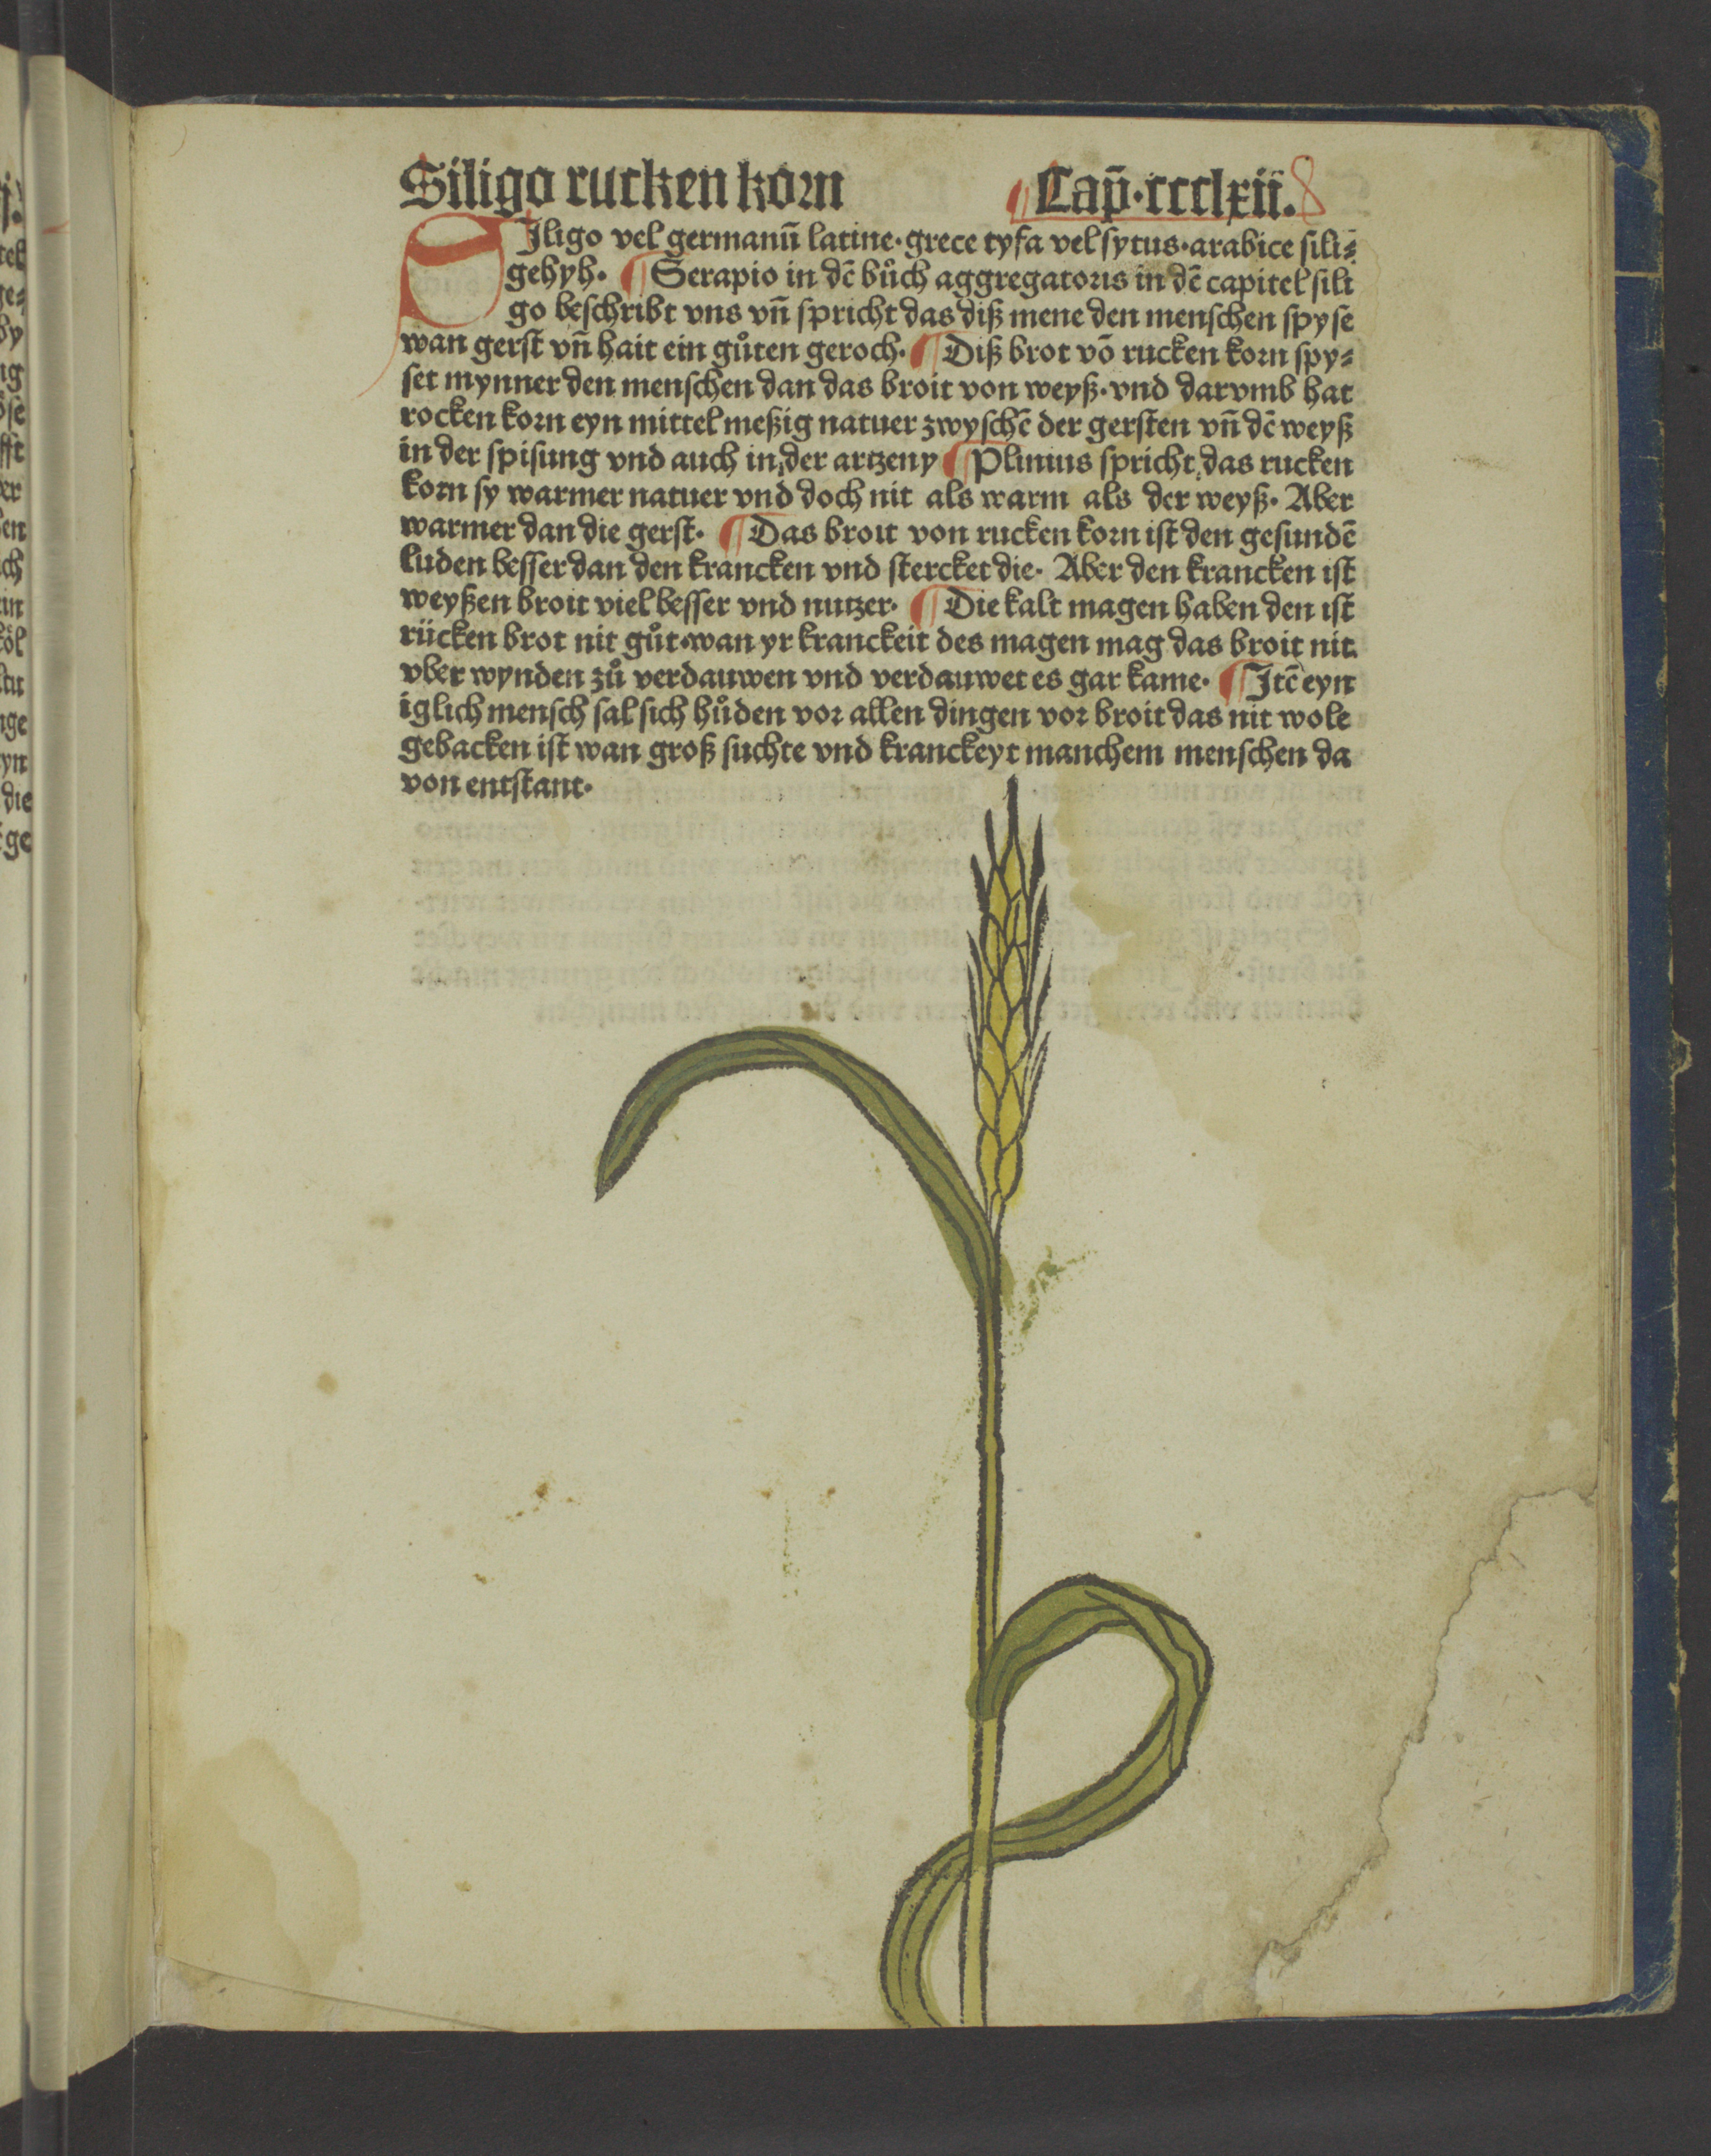 Siligo rucken korn Cap̄·ccclxii.
SIligo vel germanū latine·grece tyfa vel sytus·arabice sili⸗
gehyh· ¶ Serapio in dē bůch aggregatoris in dē capitel sili
go beschribt vns vn̄ spricht das diß mene den menschen spyse
wan gerst vn̄ hait ein gůten geroch· ¶ Diß brot vō rucken korn spy⸗
set mynner den menschen dan das broit von weyß·vnd darvmb hat
rocken korn eyn mittel meßig natuer zwyschē der gersten vn̄ dē weyß
in der spisung vnd auch in der artzeny ¶ Plinius spricht das rucken
korn sy warmer natuer vnd doch nit als warm als der weyß· Aber
warmer dan die gerst· ¶ Das broit von rucken korn ist den gesundē
luden besser dan den krancken vnd stercket die· Aber den krancken ist
weyßen broit viel besser vnd nutzer· ¶ Die kalt magen haben den ist
rücken brot nit gůt·wan yr kranckeit des magen mag das broit nit
vber wynden zů verdauwen vnd verdauwet es gar kame· ¶ Itē eyn
iglich mensch sal sich hůden vor allen dingen vor broit das nit wole
gebacken ist wan groß suchte vnd kranckeyt manchem menschen da
von entstant·